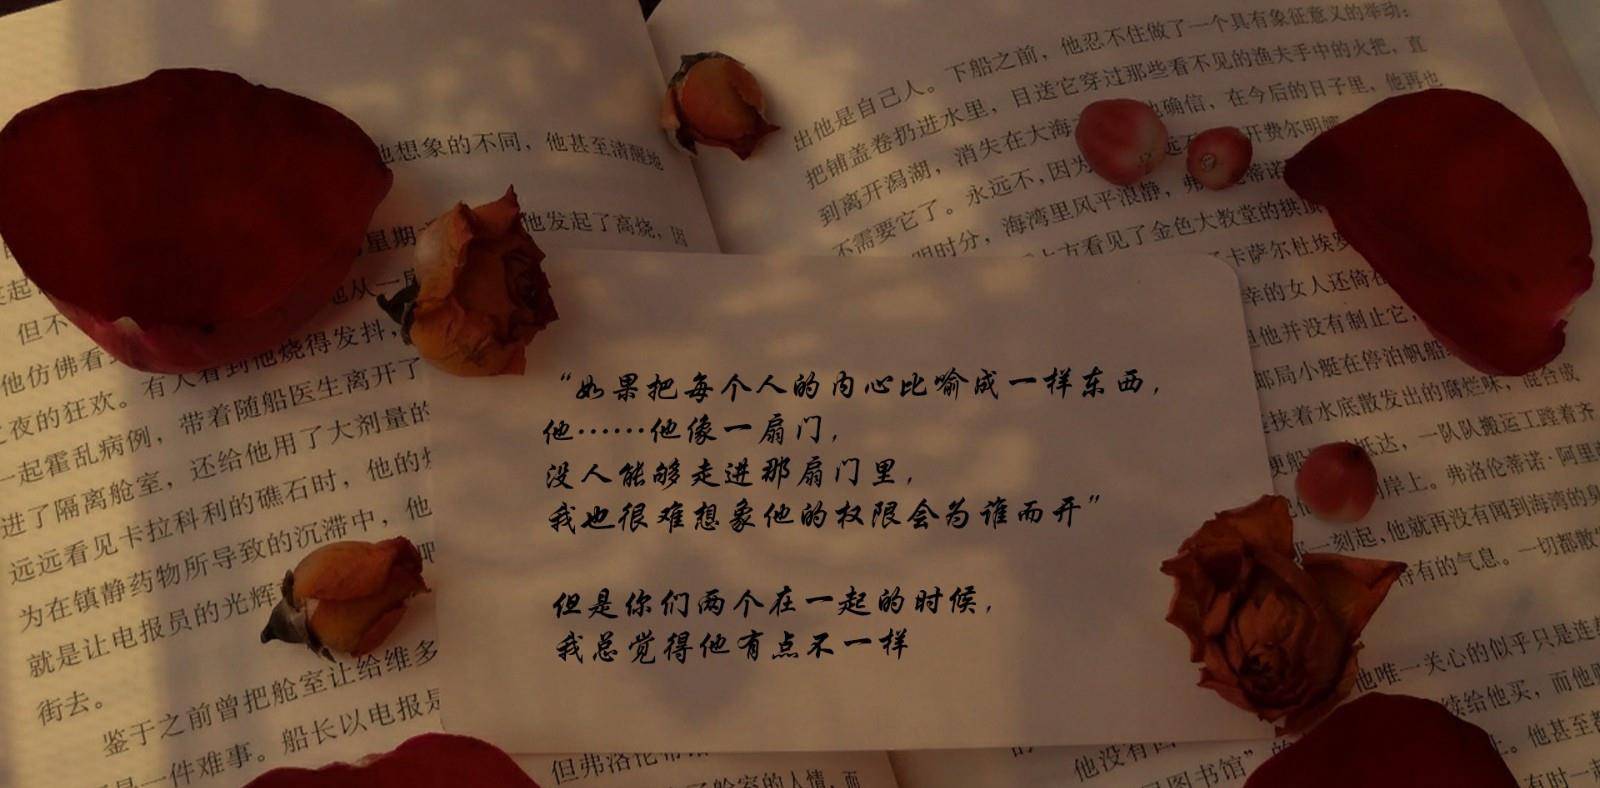 他想象的不同，他甚至清醒地
星期
他发起了高烧，因
他从一
但不
有人看到他烧得发抖，
他仿佛看
夜的狂欢。
带着随船医生离开了
一起霍乱病例，
还给他用了大剂量的
进了隔离舱室，
远远看见卡拉科利的礁石时，他的
为在镇静药物所导致的沉滞中，他
就是让电报员的光辉
街去。
鉴于之前曾把舱室让给维多
是一件难事。船长以电报
但弗洛伦
舱室的人情，而
出他是自己人。下船之前，他忍不住做了一个具有象征意义的举动：
把铺盖卷扔进水里，目送它穿过那些看不见的渔夫手中的火把，直
到离开潟湖，消失在大海
他确信，在今后的日子里，他再也
不需要它了。永远不，因为
远不
开费尔明娜
明时分，海湾里风平浪静，弗
蒂诺
上方看见了金色大教堂的拱顶
卡萨尔杜埃罗
幸的女人还倚在
但他并没有制止它，
邮局小艇在停泊帆船
挟着水底散发出的腐烂味，混合成
抵达，一队队搬运工蹚着齐
岸上。弗洛伦蒂诺·阿里
一刻起，他就再没有闻到海湾的臭
特有的气息。一切都散
“如果把每个人的内心比喻成一样东西，
他……他像一扇门，
没人能够走进那扇门里，
我也很难想象他的权限会为谁而开”
但是你们两个在一起的时候，
我总觉得他有点不一样
他唯一关心的似乎只是连
续给他买，而他
他甚至都
他没有
图书馆”的
有时一起